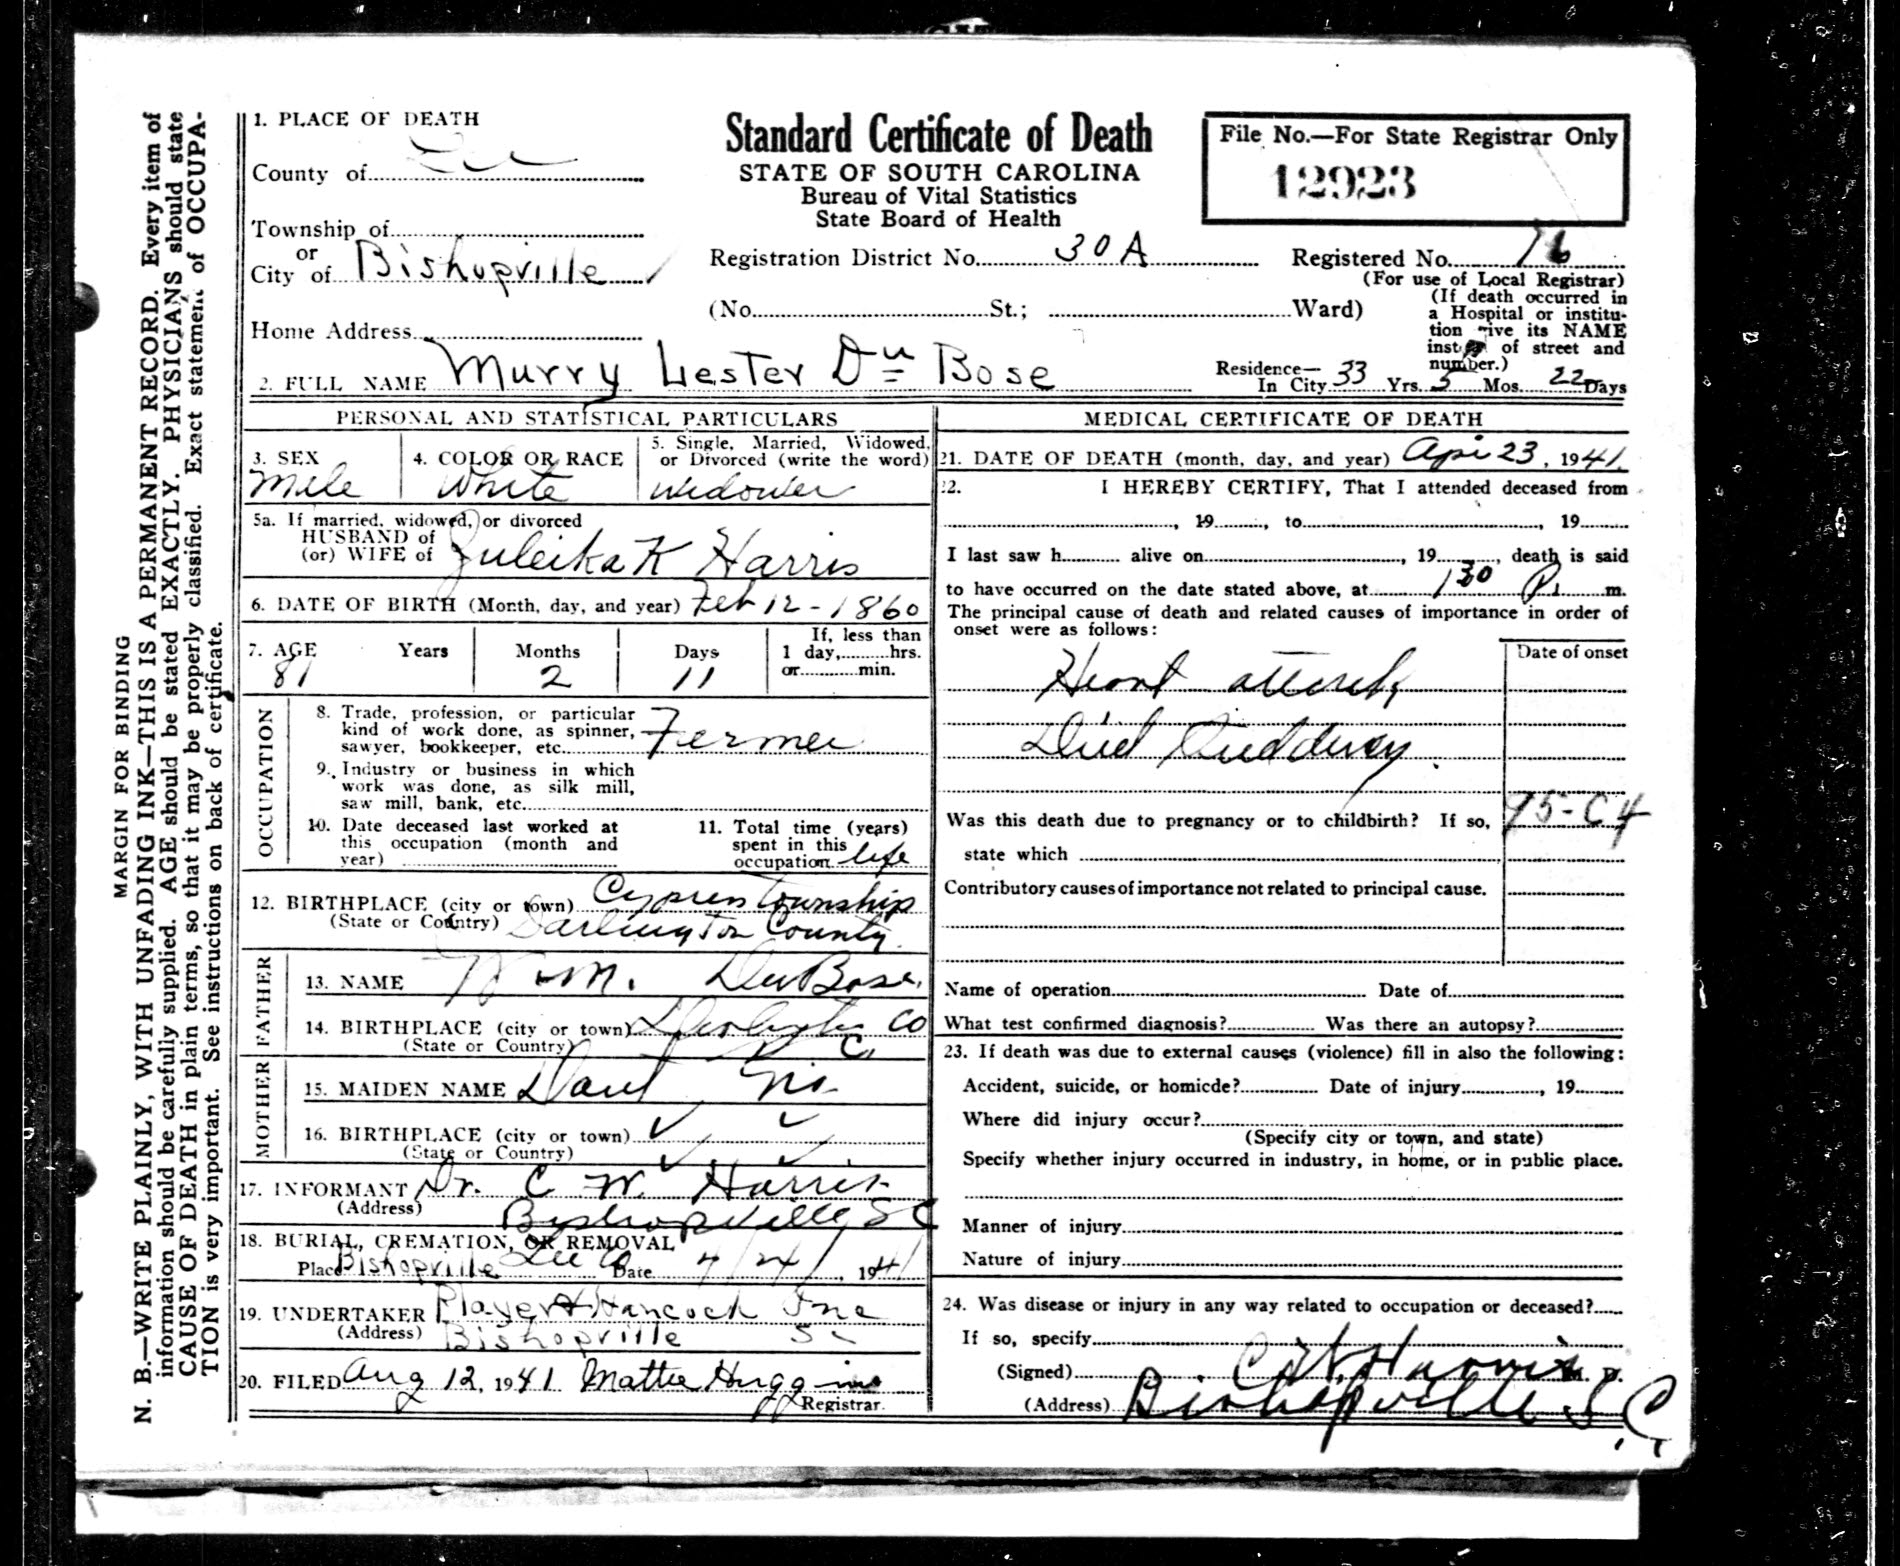 MARGIN FOR BINDING
N. B.—WRITE PLAINLY, WITH UNFADING INK—THIS IS A PERMANENT RECORD. Every item of
information should be carefully supplied. AGE should be stated EXACTLY. PHYSICIANS should state
CAUSE OF DEATH in plain terms, so that it may be properly classified. Exact statement of OCCUPA-
TION is very important. See instructions on back of certificate.
1. PLACE OF DEATH
County of Lee
Township of
or
City of Bishopville
Home Address
Standard Certificate of Death
STATE OF SOUTH CAROLINA
Bureau of Vital Statistics
State Board of Health
File No.—For State Registrar Only
12923
Registration District No. 30A
Registered No. 76
(For use of Local Registrar)
(No. St.; Ward)
(If death occurred in
a Hospital or institu-
tion give its NAME
instead of street and
number.)
2. FULL NAME Murry Lester Du Bose
Residence—
In City 33 Yrs. 5 Mos. 22 Days
PERSONAL AND STATISTICAL PARTICULARS
3. SEX
Male
4. COLOR OR RACE
White
5. Single, Married, Widowed,
or Divorced (write the word)
Widower
5a. If married, widowed, or divorced
HUSBAND of
(or) WIFE of
Zuleika K Harris
6. DATE OF BIRTH (Month, day, and year) Feb 12 - 1860
7. AGE Years Months Days
81 2 11
If, less than
1 day, hrs.
or min.
OCCUPATION
8. Trade, profession, or particular
kind of work done, as spinner,
sawyer, bookkeeper, etc.
Farmer
9. Industry or business in which
work was done, as silk mill,
saw mill, bank, etc.
10. Date deceased last worked at
this occupation (month and
year)
11. Total time (years)
spent in this
occupation life
12. BIRTHPLACE (city or town) Cypress Township
(State or Country) Darlington County
FATHER
13. NAME W. M. DuBose
14. BIRTHPLACE (city or town) Darlington Co
(State or Country) S. C.
MOTHER
15. MAIDEN NAME
16. BIRTHPLACE (city or town) ✓ ✓
(State or Country) ✓ ✓
17. INFORMANT Dr. C W. Harris
(Address) Bishopville, S C
18. BURIAL, CREMATION, OR REMOVAL
Place Bishopville Lee Co Date 4/24/, 1941
19. UNDERTAKER Player & Hancock Inc
(Address) Bishopville SC
20. FILED Aug 12, 1941 Mattie Huggins
Registrar.
MEDICAL CERTIFICATE OF DEATH
21. DATE OF DEATH (month, day, and year) Apr 23, 1941.
22. I HEREBY CERTIFY, That I attended deceased from
, 19 , to , 19
I last saw h alive on , 19 , death is said
to have occurred on the date stated above, at 1 30 P. m.
The principal cause of death and related causes of importance in order of
onset were as follows:
Date of onset
Heart attack
Died Suddenly.
95-C 4
Was this death due to pregnancy or to childbirth? If so,
state which
Contributory causes of importance not related to principal cause.
Name of operation Date of
What test confirmed diagnosis? Was there an autopsy?
23. If death was due to external causes (violence) fill in also the following:
Accident, suicide, or homicde? Date of injury , 19
Where did injury occur?
(Specify city or town, and state)
Specify whether injury occurred in industry, in home, or in public place.
Manner of injury
Nature of injury
24. Was disease or injury in any way related to occupation or deceased?
If so, specify
(Signed) C. W. Harris M. D.
(Address) Bishopville S. C.